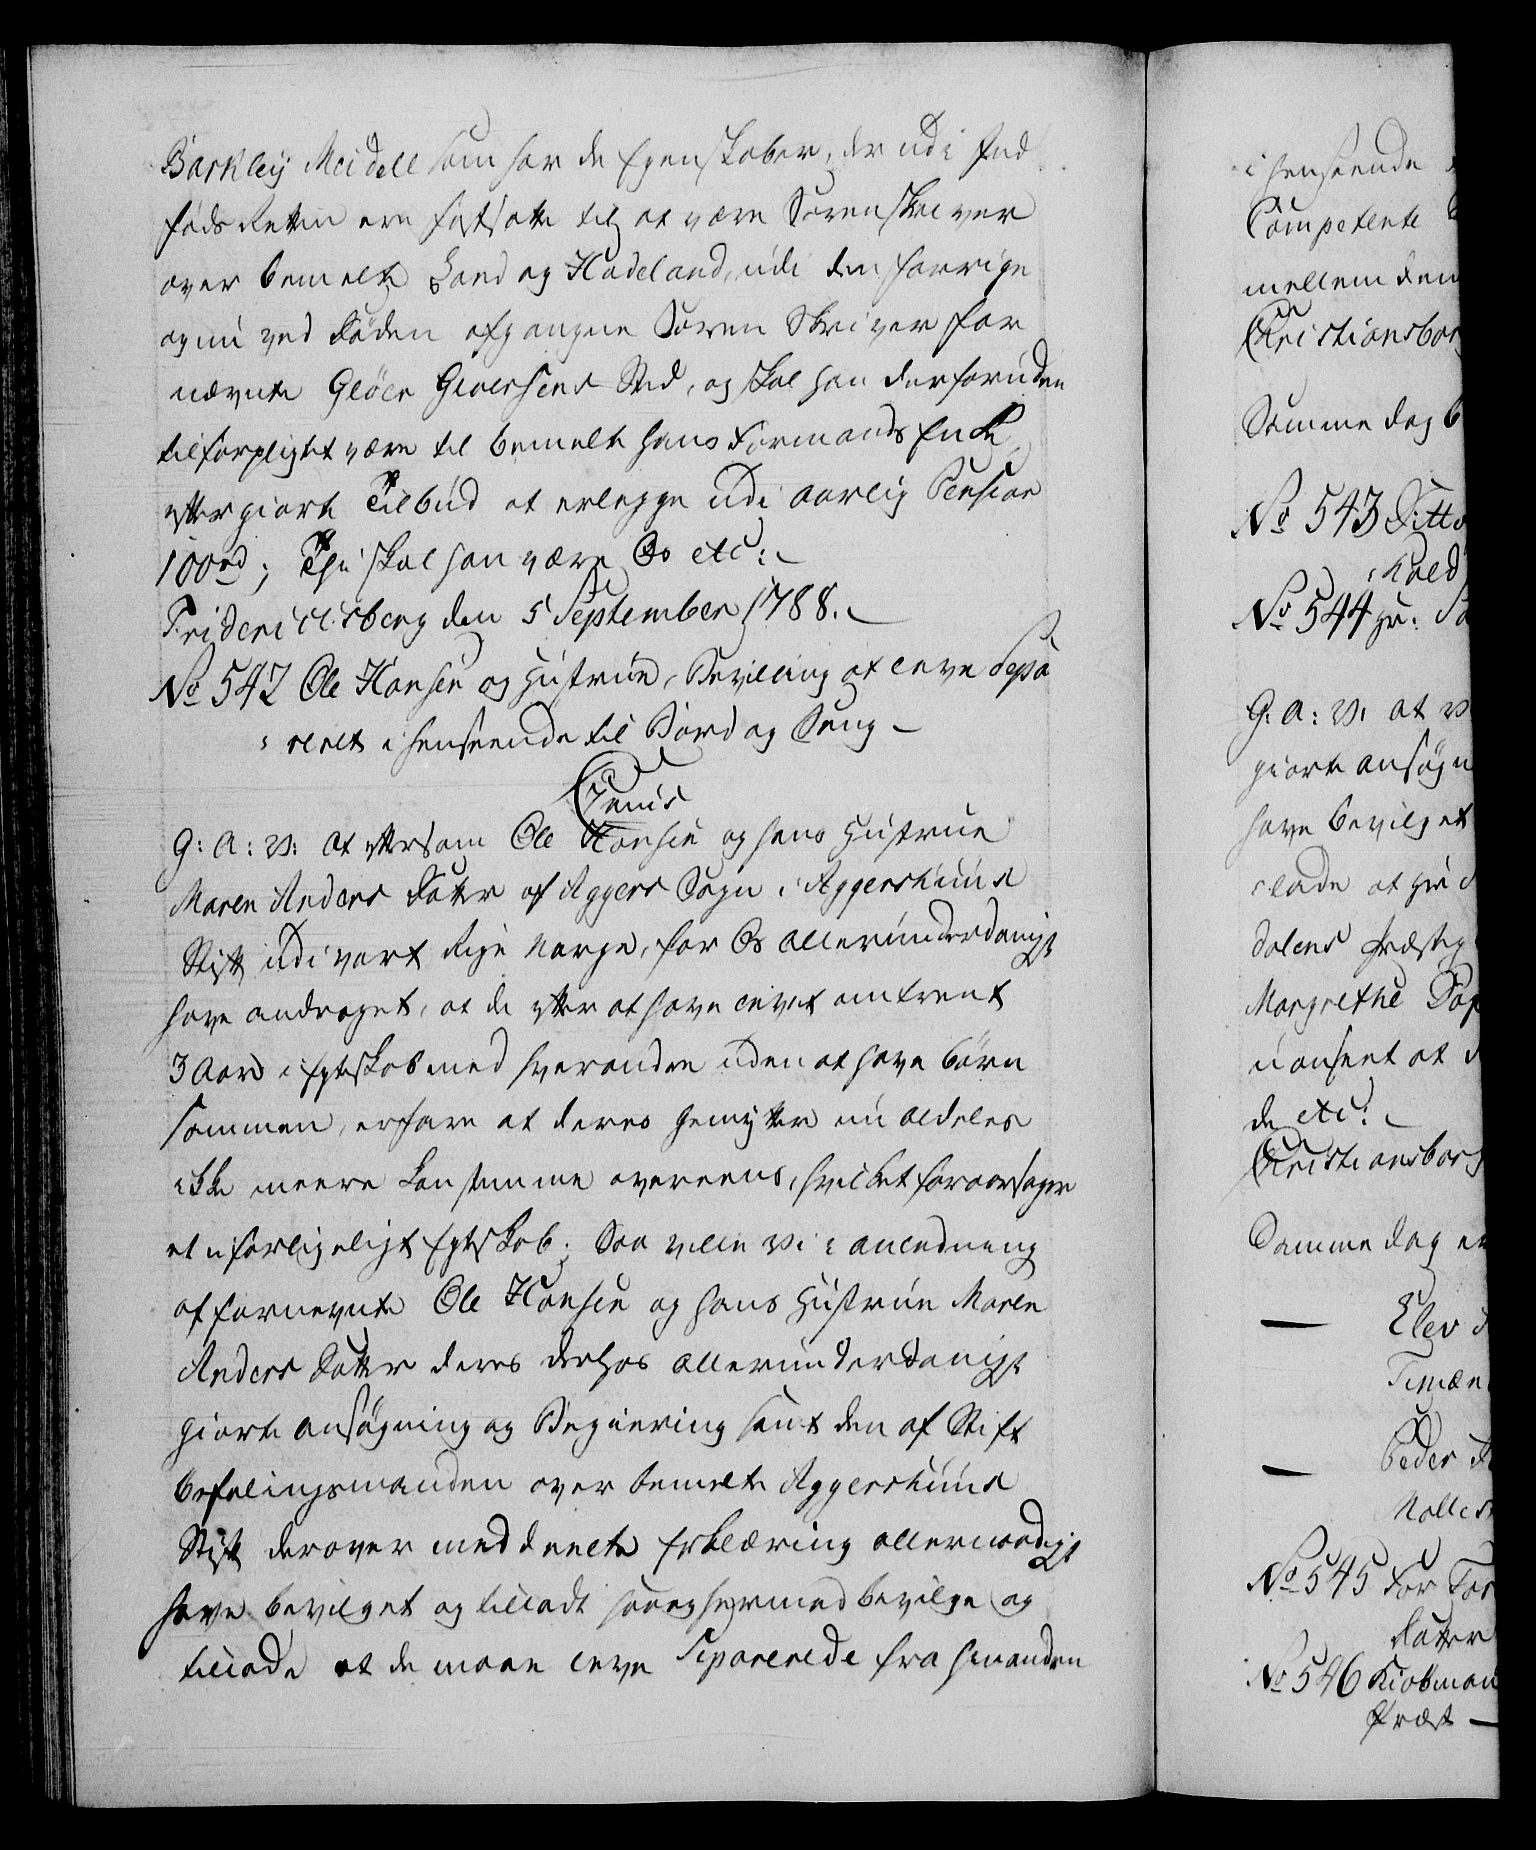 Barkleÿ Meidell som har de Egenskaber, der udi Ind
føds Retten ere fastsatte til at være Sorenskriver
over bemelte Land og Hadeland, udi den forrige
og nu ved Døden afgangne Soren Skriver for
nævnte Gløer Giversens Sted, og skal han derforuden
tilforpligtet være til bemelte hans Formands Enke
efter giorte Tilbud at erlegge udi aarlig Pension
100rd; Thi skal han være Os etc:
Friderichsberg den 5 September 1788.
No 542 Ole Hansen og Hustrue, Bevilling at leve Sepa
reret i henseende til Bord og Seng
Genis
G: A: V: at eftersom Ole Hansen og hans Hustrue
Maren Anders Datter af Aggers Sogn i Aggershuus
Stift udi vort Rige Norge, for Os allerunderdanigst
have andraget, at de efter at have levet omtrent
3 Aar i Egteskab med hverandre uden at have børn
sammen, erfare at deres Gemytter nu aldeles
ikke meere kan stemme overeens, hvilket foraarsager
et uforligeligt Egteskab; Saa ville Vi i anledning
af fornevnte Ole Hansen og hans Hustrue Maren
Anders Datter deres derhos allerunderdanigst
giorte ansøgning og Begiering samt den af Stift
befalingsmanden over bemelte Aggershuus
Stift derover meddeelte Erklæring allernaadigst
have bevilget og tilladt saa og hermed bevilge og
tillade at de maae leve Separerede fra hinanden
i henseende
Competente
mellem dem
Christiansborg
Samme dag
No 543 Ditto
No 544 Hr:
G: A: V: at v
giorte ansøgn
have bevilget
lade at Hr
dalens Præsteg
Margrethe
uanseet at
de etc:
Christiansborg
Samme dag er
Elev
Peder
No 545 For Tor
Datter
No 546 Kiøbman
Præst